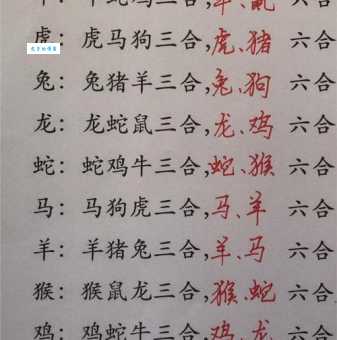 牛：牛蛇鸡三合,牛、鼠
虎：虎马狗三合,虎、猪 六合
兔：兔猪羊三合,兔、狗 六合
龙：龙蛇鼠三合,龙、鸡 六合
蛇：蛇鸡牛三合,蛇、猴 六合
马：马狗虎三合,马、羊 六合
羊：羊猪兔三合,羊、马 六合
猴：猴鼠龙三合,猴、蛇 六合
鸡：鸡蛇牛三合,鸡、龙 六合